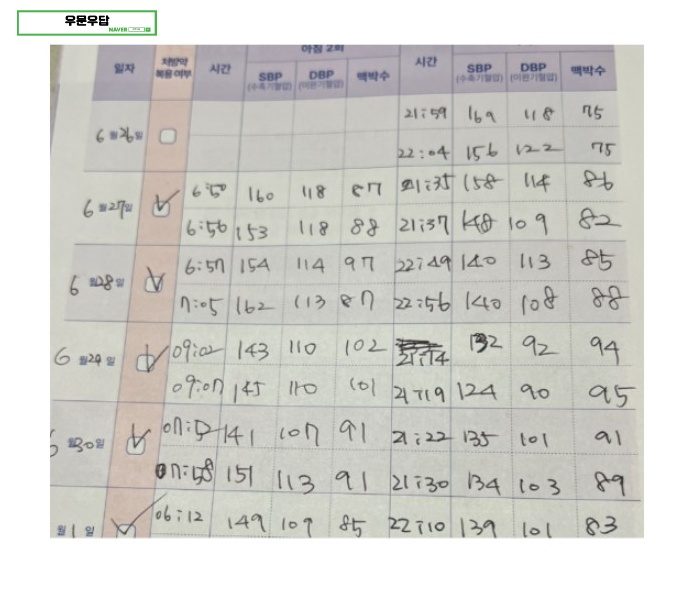 우문우답
NAVER
아침 2회
일자 처방약 복용 여부 시간 SBP (수축기혈압) DBP (이완기혈압) 맥박수 시간 SBP (수축기혈압) DBP (이완기혈압) 맥박수
6월 26일 21:59 169 118 75
22:04 156 122 75
6월 27일 6:50 160 118 87 21:35 158 114 86
6:56 153 118 88 21:37 148 109 82
6월 28일 6:57 154 114 97 22:49 140 113 85
7:05 162 113 87 22:56 140 108 88
6월 29일 09:02 143 110 102 21:14 132 92 94
09:07 145 110 101 21:19 124 90 95
6월 30일 07:52 141 107 91 21:22 135 101 91
07:58 151 113 91 21:30 134 103 89
월 1일 06:12 149 109 85 22:10 139 101 83